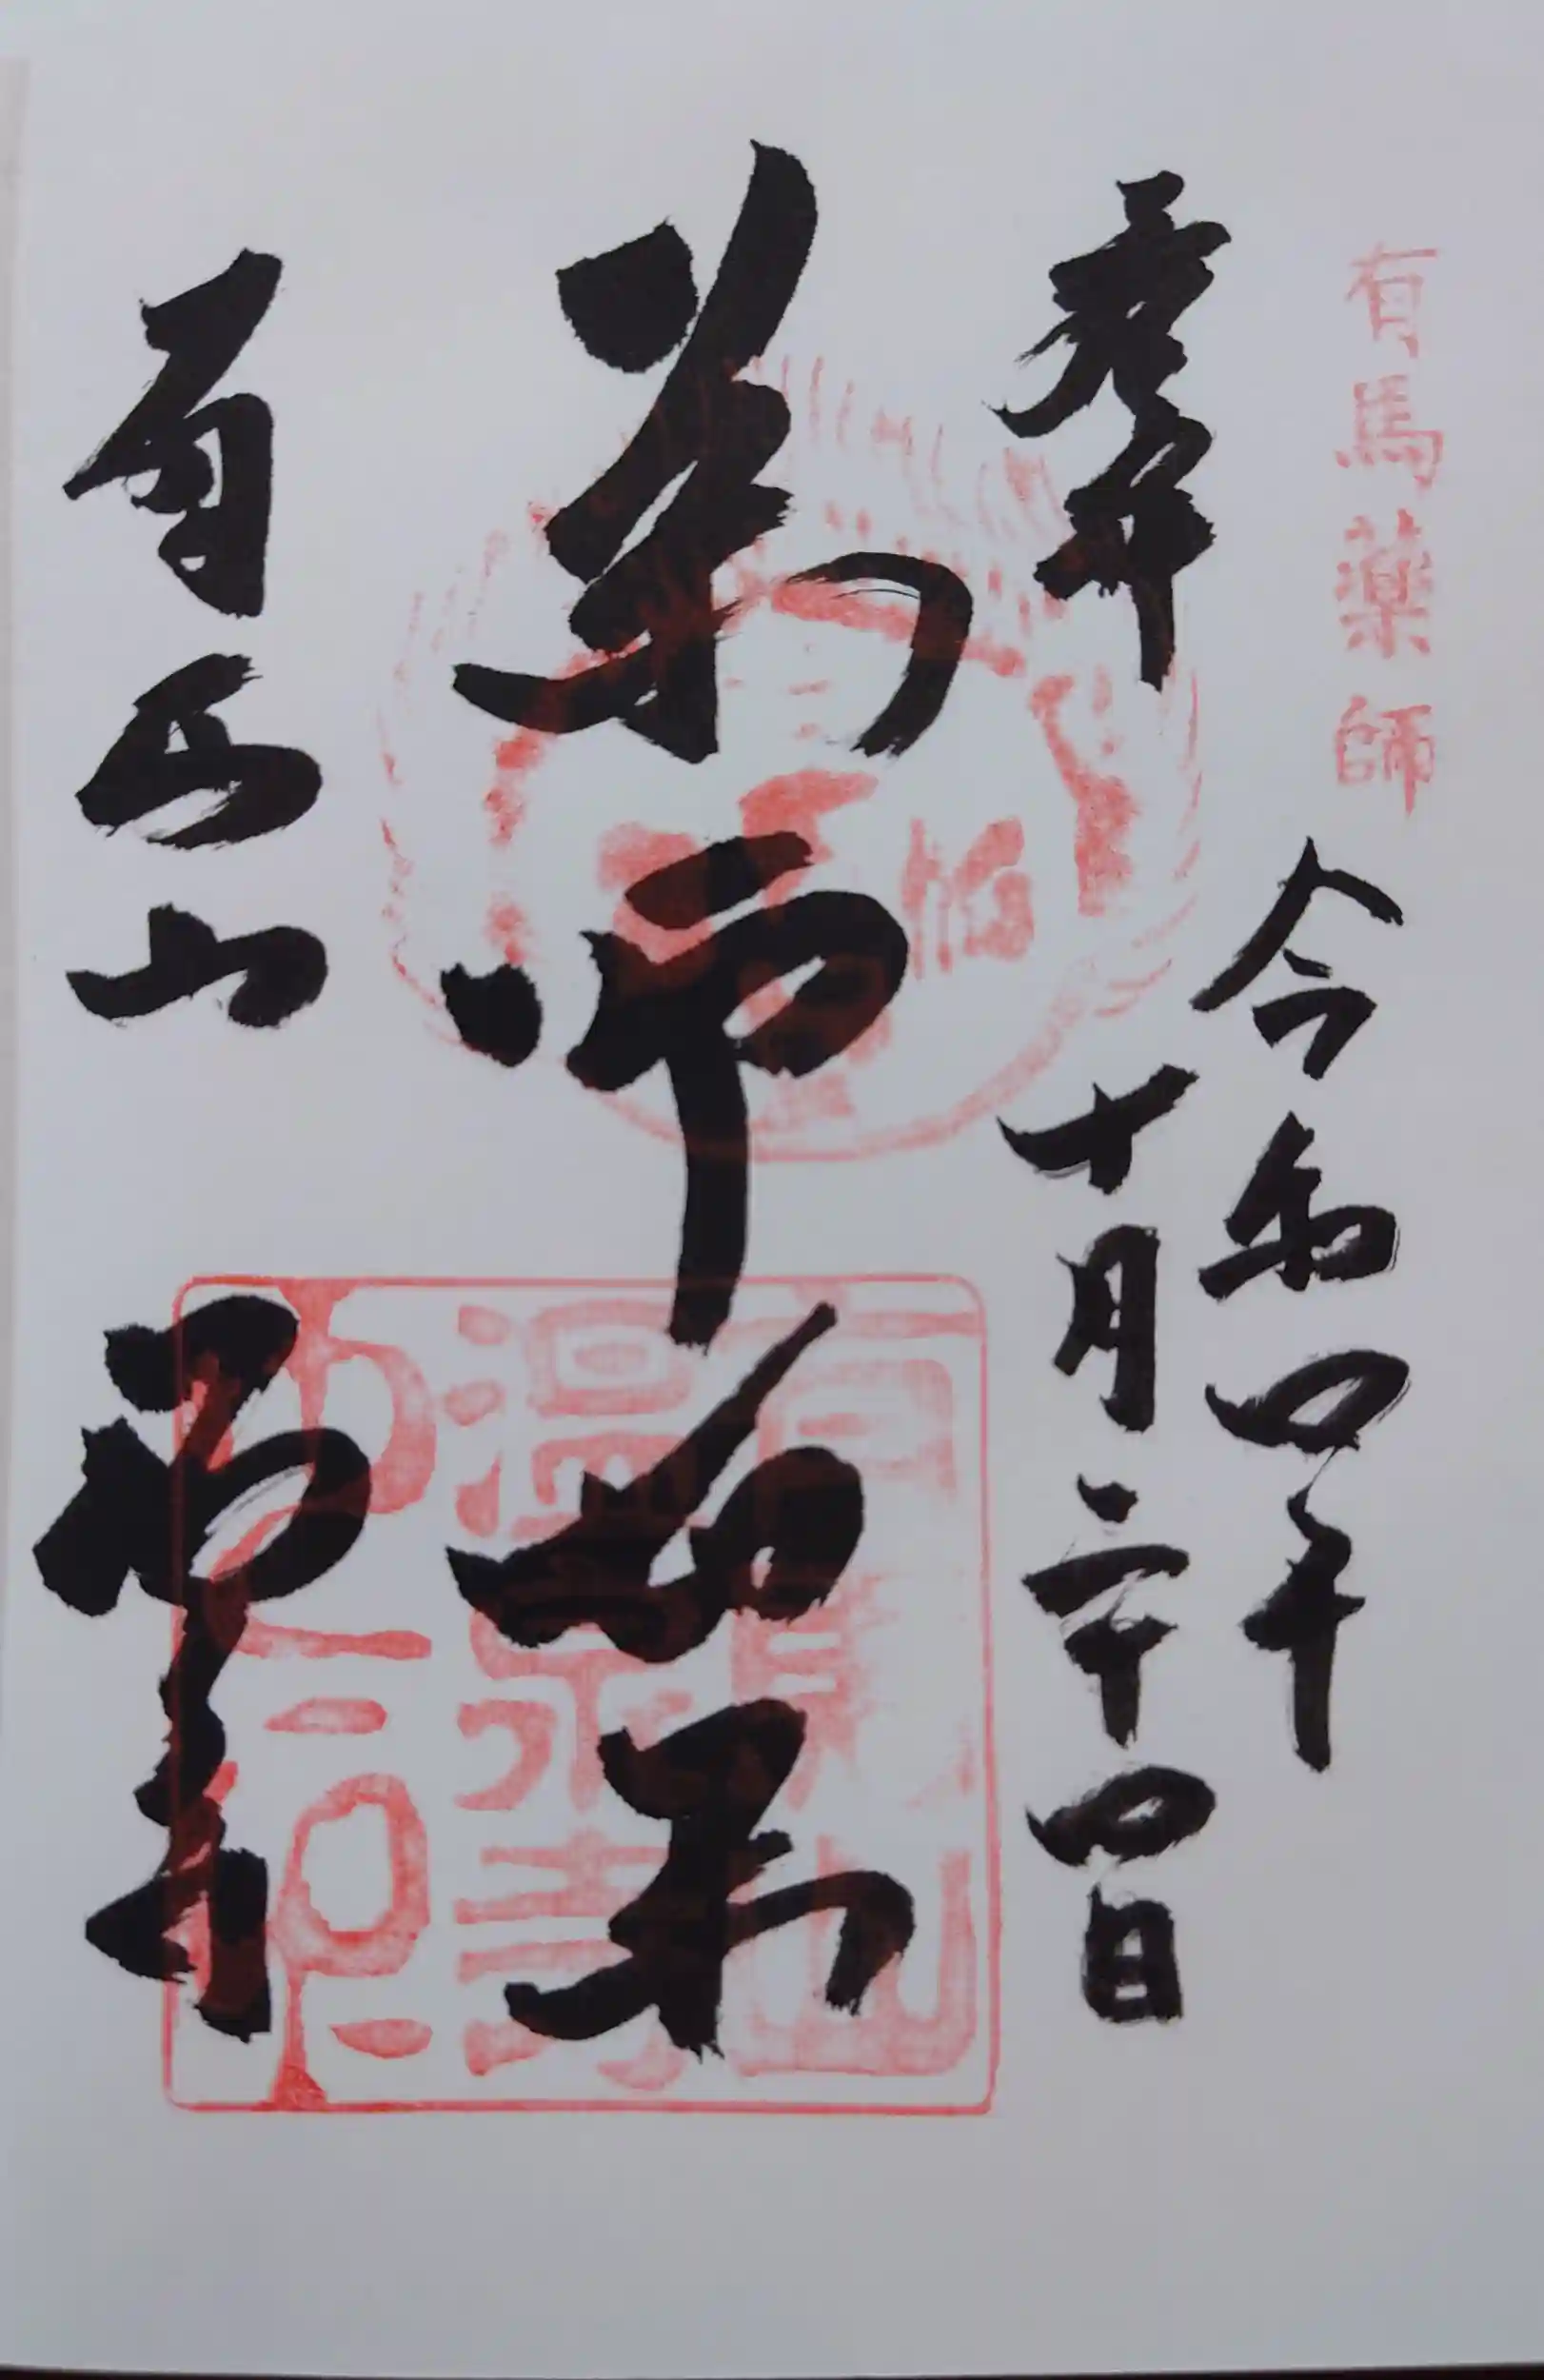 有馬薬師
令和四年
十月二十四日
奉拝
薬師如来
有馬山
温泉寺
有馬山
温泉寺